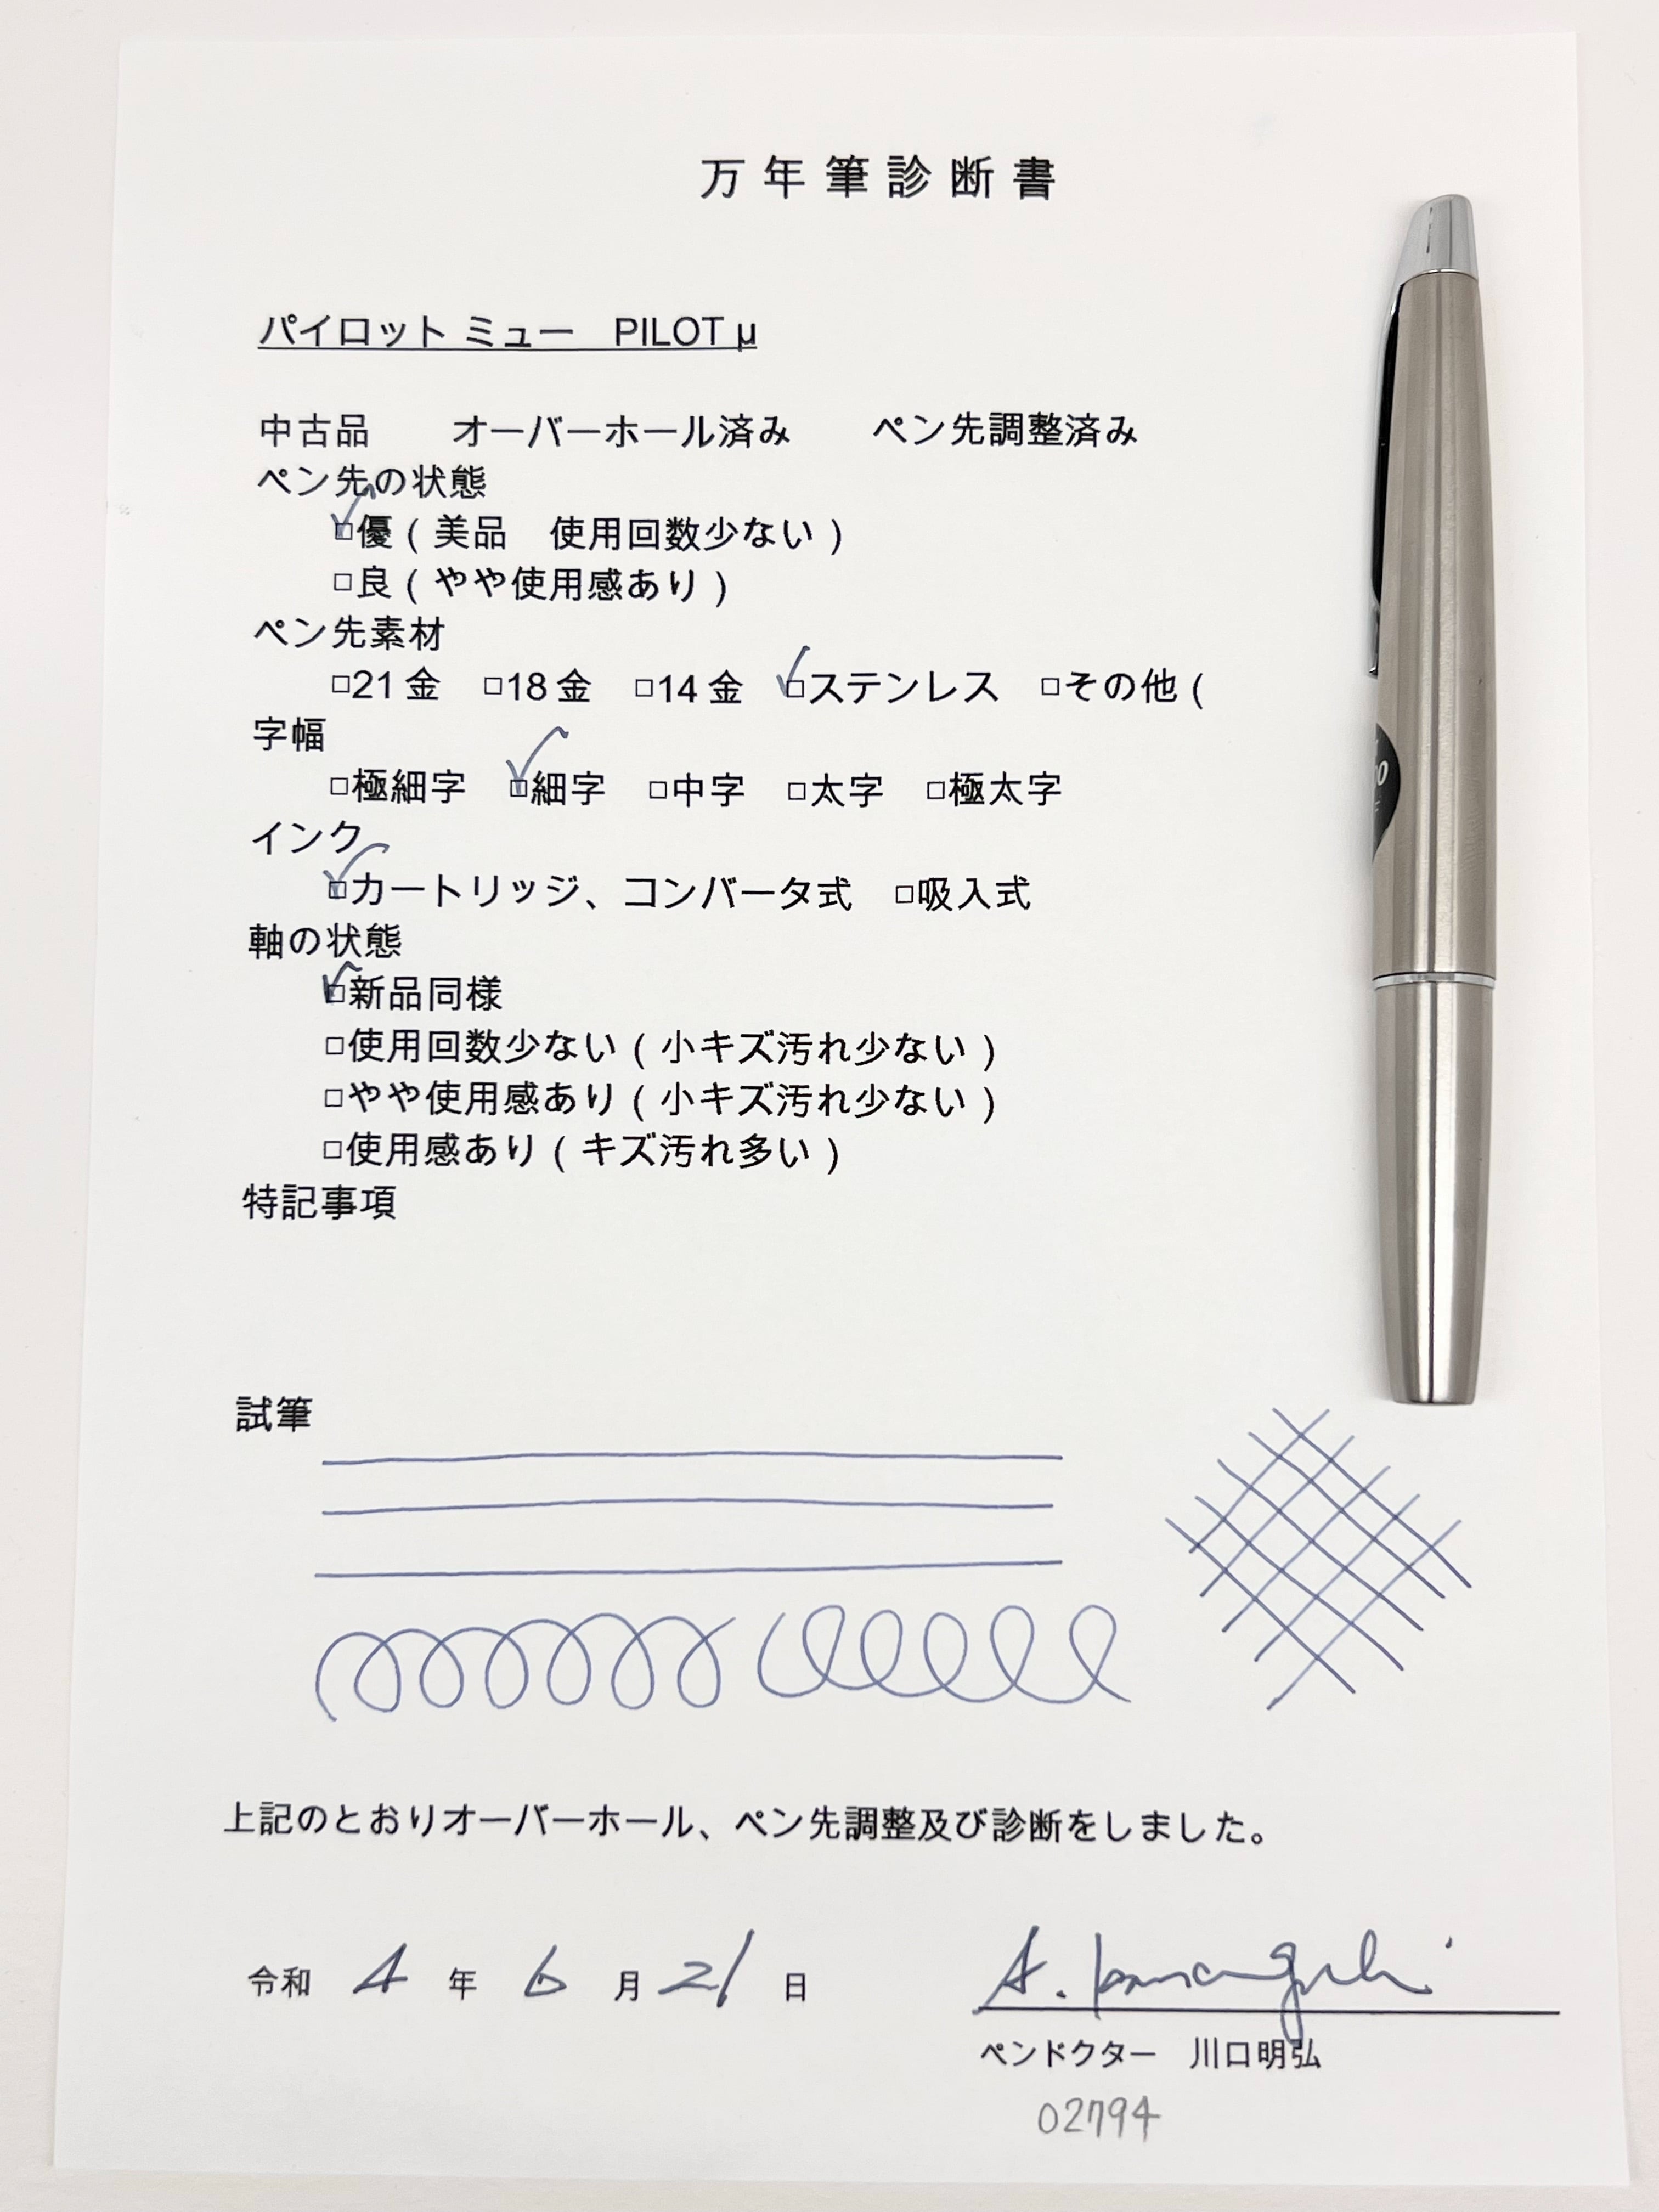 万年筆診断書
パイロット ミュー　PILOT μ
中古品　　オーバーホール済み　　ペン先調整済み
ペン先の状態
□優（美品　使用回数少ない）
□良（やや使用感あり）
ペン先素材
□21金　□18金　□14金　□ステンレス　□その他（
字幅
□極細字　□細字　□中字　□太字　□極太字
インク
□カートリッジ、コンバータ式　□吸入式
軸の状態
□新品同様
□使用回数少ない（小キズ汚れ少ない）
□やや使用感あり（小キズ汚れ少ない）
□使用感あり（キズ汚れ多い）
特記事項
試筆
上記のとおりオーバーホール、ペン先調整及び診断をしました。
令和 4 年 6 月 21 日
A. Kawaguchi
ペンドクター　川口明弘
02794